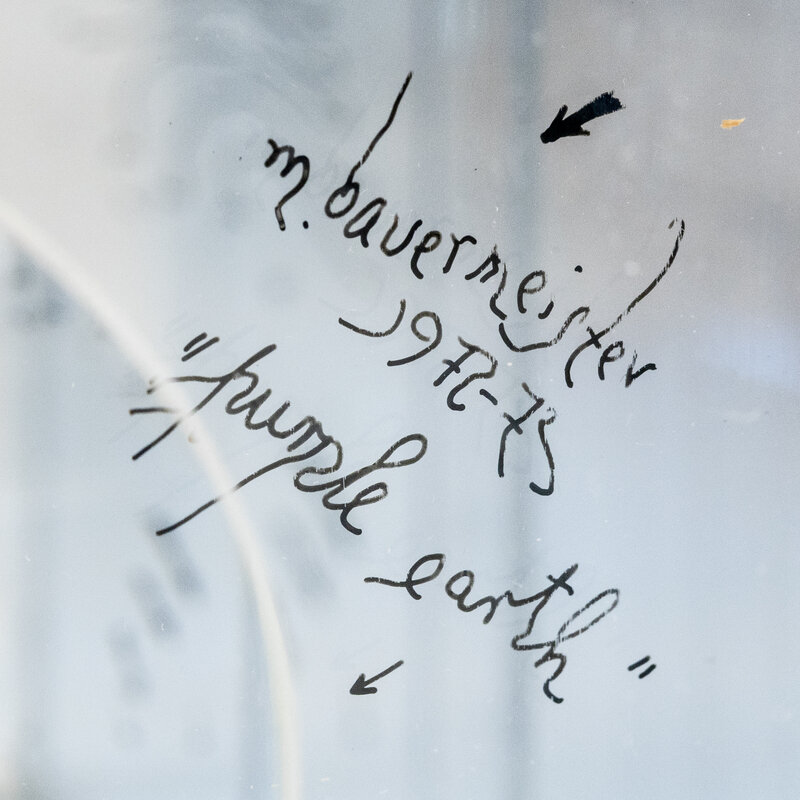 m. bauermeister
1972-73
"purple
earth"